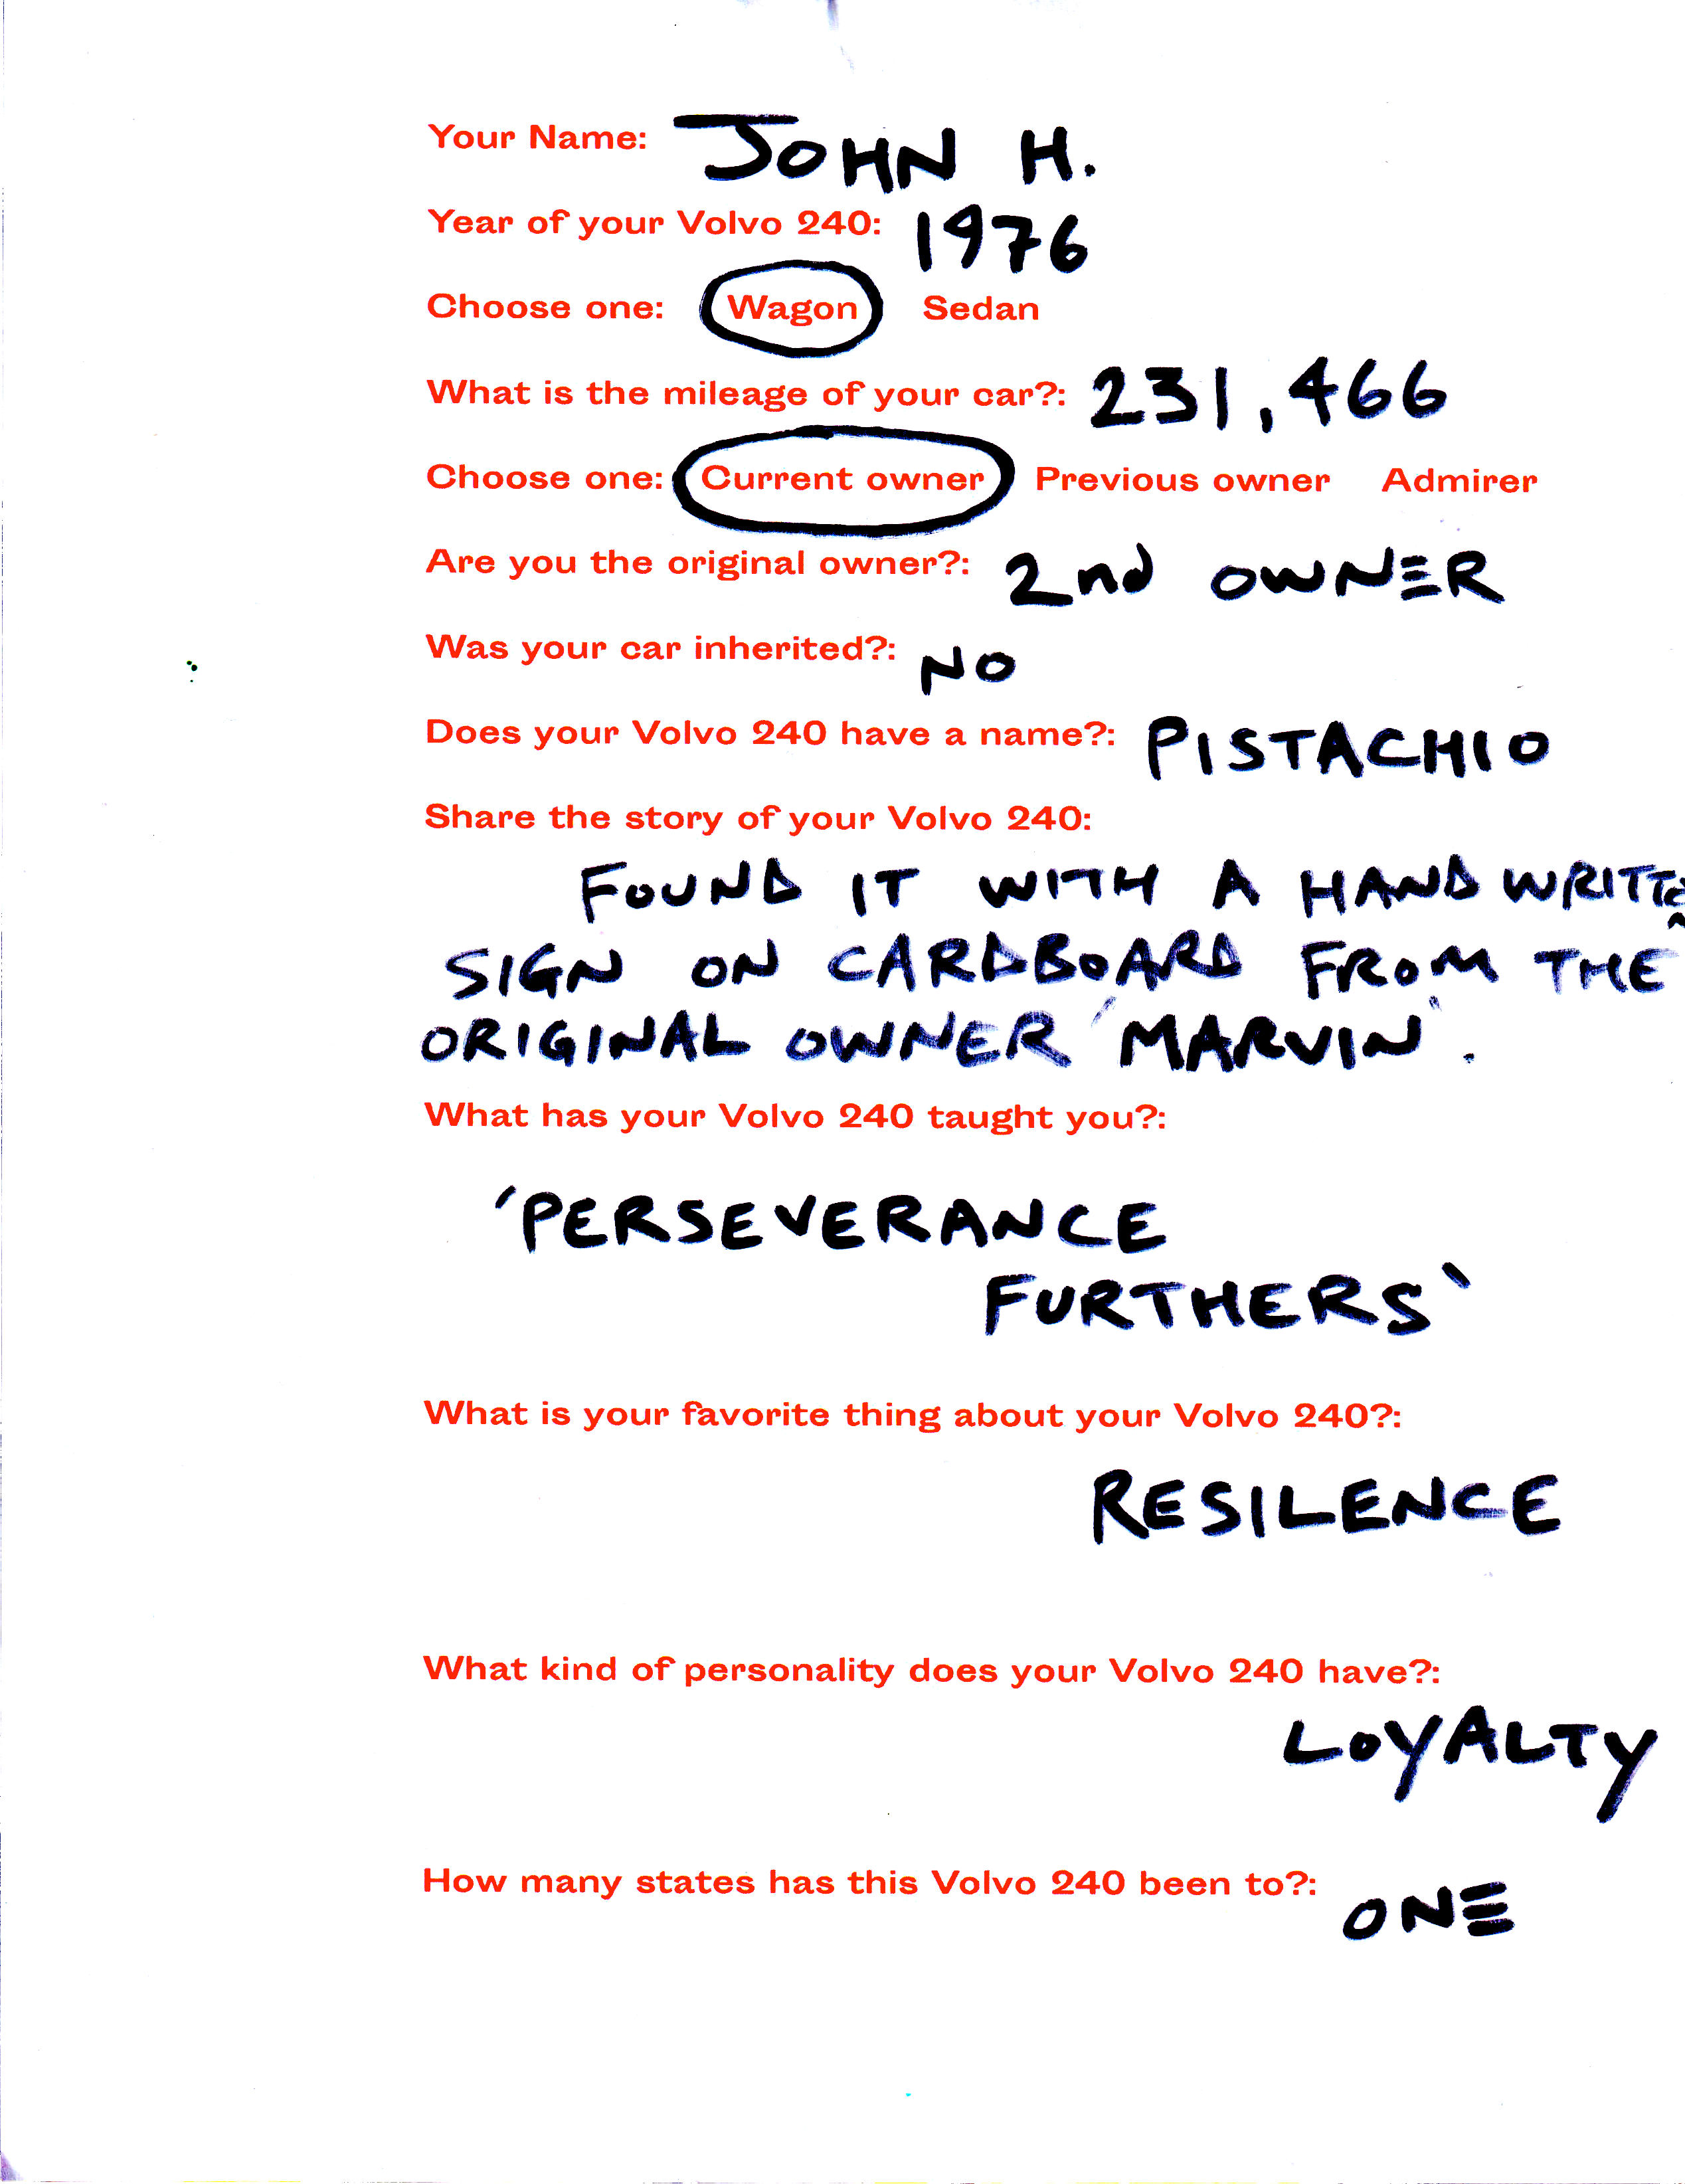 Your Name: JOHN H.
Year of your Volvo 240: 1976
Choose one: Wagon Sedan
What is the mileage of your car?: 231,466
Choose one: Current owner Previous owner Admirer
Are you the original owner?: 2nd OWNER
Was your car inherited?: NO
Does your Volvo 240 have a name?: PISTACHIO
Share the story of your Volvo 240:
FOUND IT WITH A HAND
SIGN ON CARDBOARD FROM THE
ORIGINAL OWNER 'MARVIN'.
What has your Volvo 240 taught you?:
'PERSEVERANCE
FURTHERS'
What is your favorite thing about your Volvo 240?:
RESILENCE
What kind of personality does your Volvo 240 have?:
LOYALTY
How many states has this Volvo 240 been to?: ONE